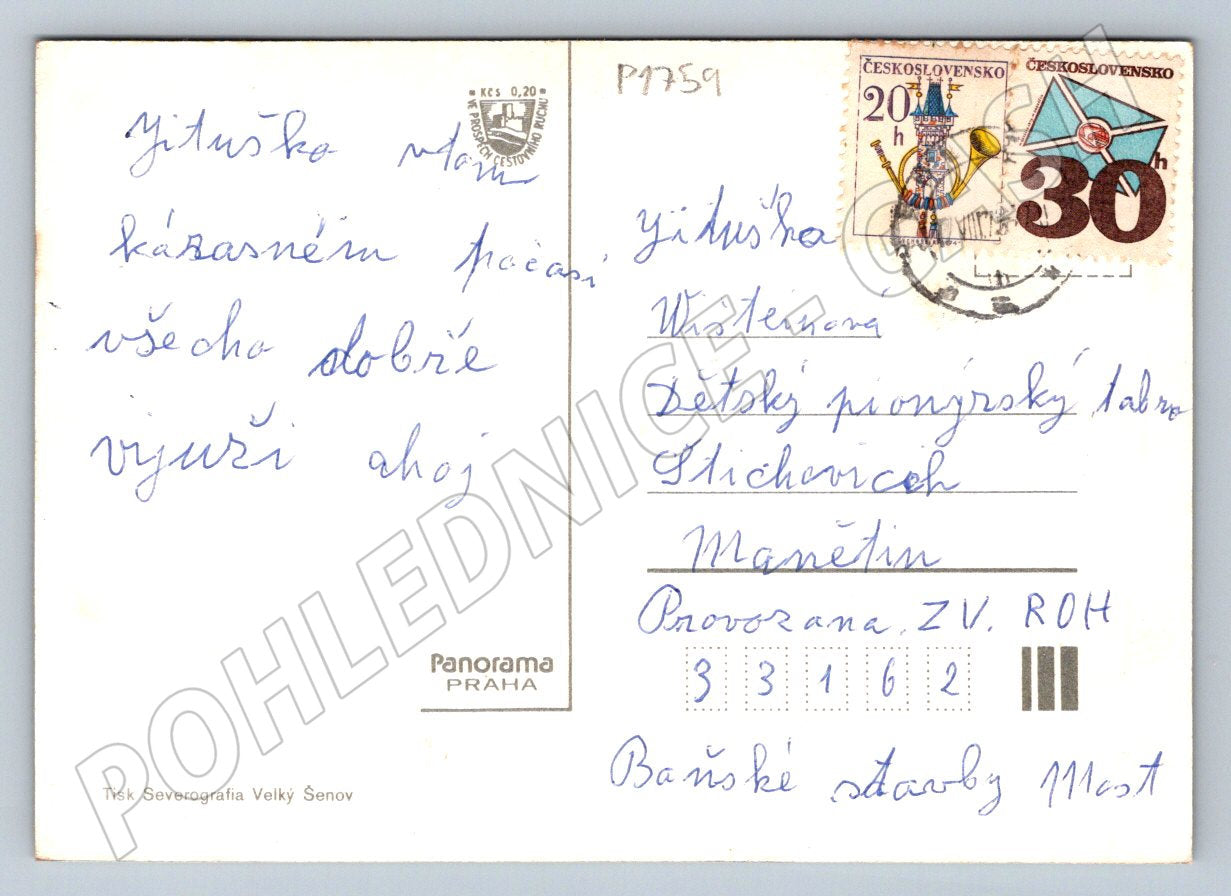 P1759
Kčs 0,20
VE PROSPĚCH CESTOVNÍHO RUCHU
Jituško vtom
kásasném počasí
všecho dobře
využi ahoj
Panorama
PRAHA
Tisk Severografia Velký Šenov
ČESKOSLOVENSKO
20
h
ČESKOSLOVENSKO
30
h
Jituška
Wišteinová
Dětský pionýrský tabro
Stichovicch
Manětin
Provozana ZV. ROH
3 3 1 6 2
Baňské stavby Most
POHLEDNICE - CASH